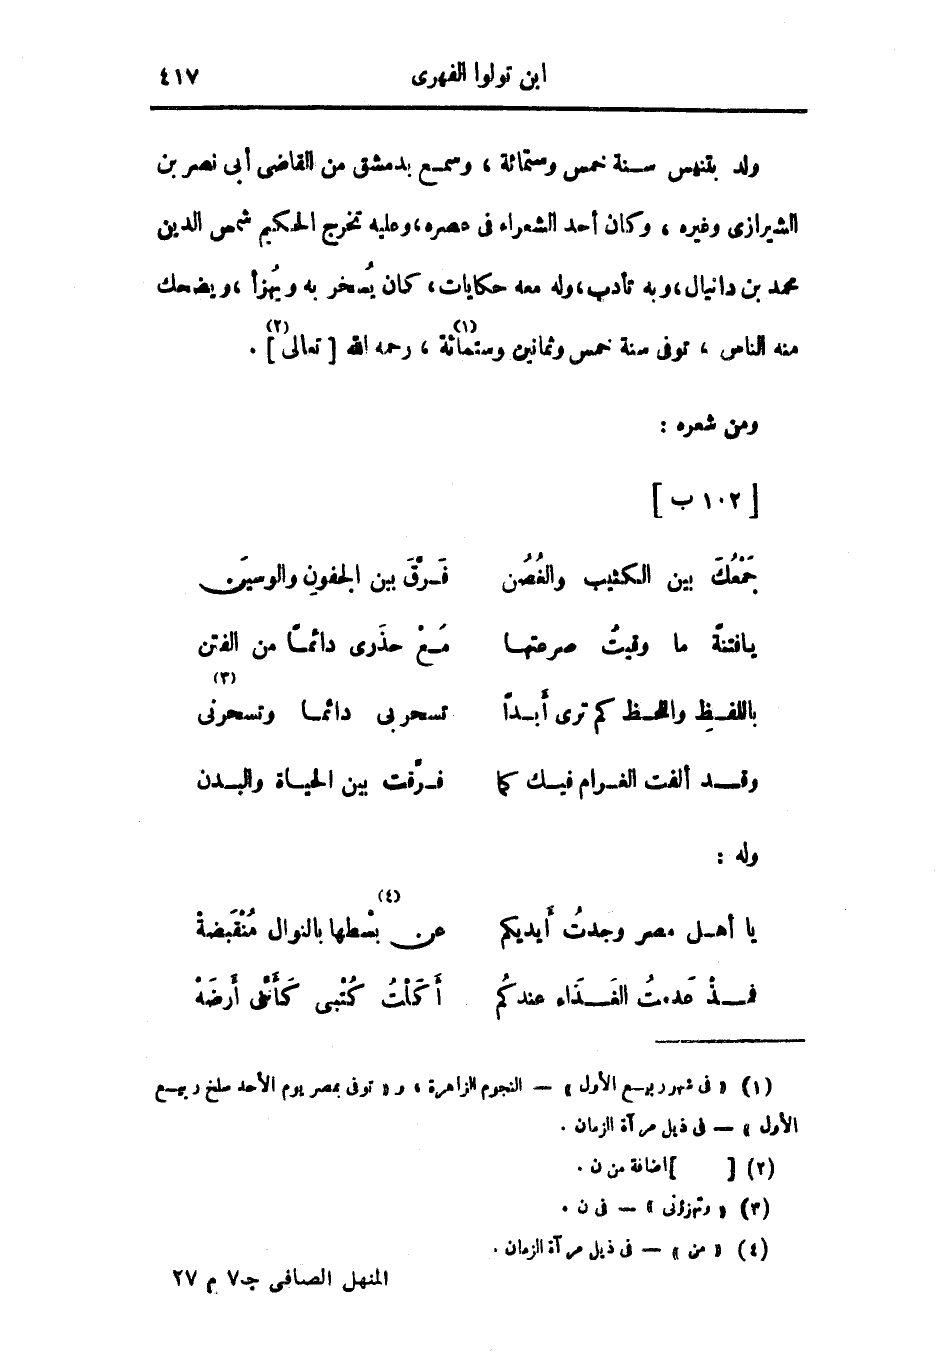 ابن تولوا الفهرى ٤١٧
ولد بتنيس سنة خمس وستمائة ، وسمع بدمشق من القاضى أبى نصر بن
الشيرازى وغيره ، وكان أحد الشعراء فى عصره ، وعليه تخرج الحكيم شمس الدين
محمد بن دانيال ، وبه تأدب ، وله معه حكايات ، كان يُسخر به ويُهزأ ، ويضحك
منه الناس ، توفى سنة خمس وثمانين وستمائة(١) ، رحمه الله [ تعالى ](٢) .
ومن شعره :
[ ١٠٢ ب ]
جَمْعُكَ بين الكثيب والغُصُن فَرَّقَ بين الجفونِ والوسَنِ
يافتنةً ما وقيتُ صرعتها مَعْ حذَرى دائمًا من الفتن
باللفظِ واللحظ كم ترى أَبداً تسحربى دائما وتسحرنى(٣)
وقد ألفت الغرام فيك كما فرَّقت بين الحياة والبدن
وله :
يا أهل مصر وجدتُ أَيديكم عن(٤) بسْطها بالنوال مُنْقَبضةْ
فمذْ عَدمتُ الغَذَاء عندكُم أَكَلْتُ كُتْبى كَأَنَّى أَرضَهْ
(١) « فى شهر ربيع الأول » — النجوم الزاهرة ، و « توفى بمصر يوم الأحد سلخ ربيع
الأول » — فى ذيل مرآة الزمان .
(٢) [ ] اضافة من ن .
(٣) « وتهزؤنى » — فى ن .
(٤) « من » — فى ذيل مرآة الزمان .
المنهل الصافى جـ٧ م ٢٧